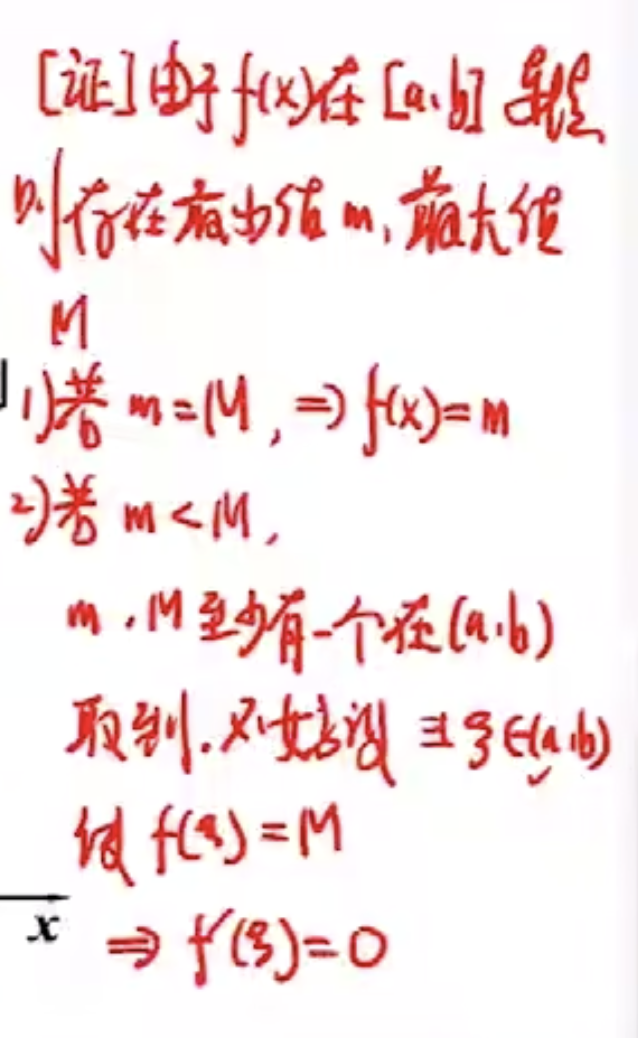 [证]由于f(x)在[a,b]连续
则存在最小值m,最大值
M
1)若 m=M,⇒f(x)=m
2)若 m<M,
m,M至少有一个在(a,b)
取到.不妨设∃ξ∈(a,b)
使 f(ξ)=M
x ⇒ f'(ξ)=0